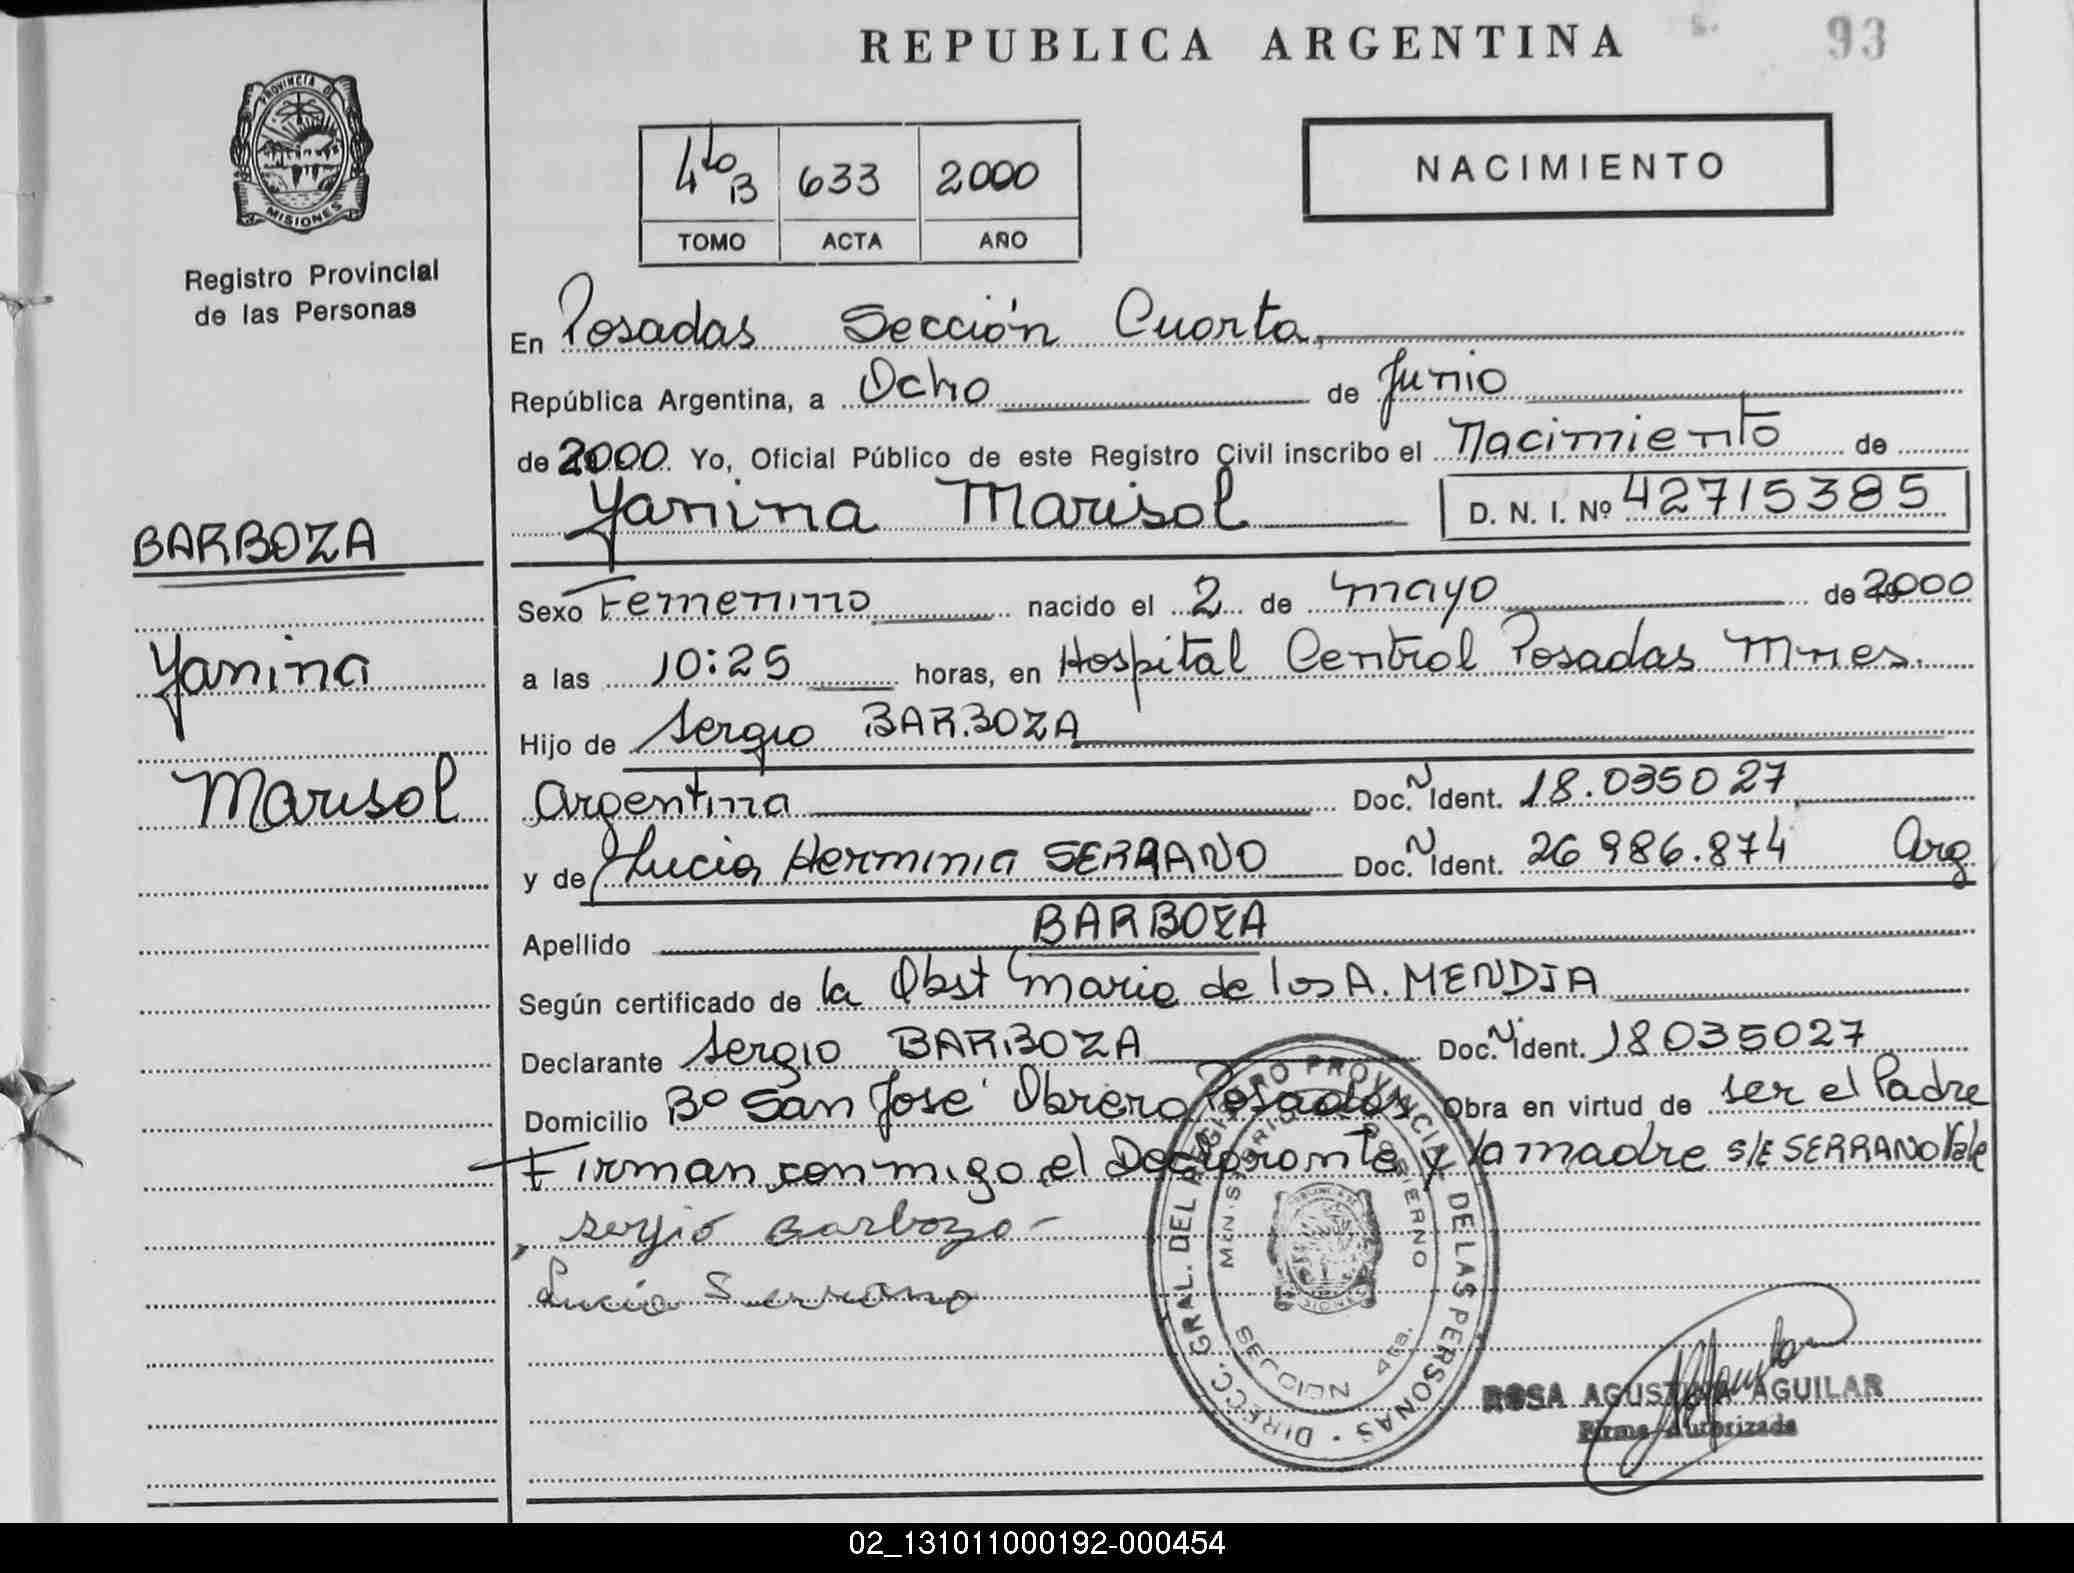 REPUBLICA ARGENTINA
93
PROVINCIA DE
MISIONES
Registro Provincial
de las Personas
4to B 633 2000
TOMO ACTA AÑO
NACIMIENTO
En Posadas Sección Cuarta,
República Argentina, a Ocho de Junio
de 2000. Yo, Oficial Público de este Registro Civil inscribo el Nacimiento de
Yanina Marisol D. N. I. Nº 42715385
BARBOZA
Yanina
Marisol
Sexo Femenino nacido el 2 de mayo de 2000
a las 10:25 horas, en Hospital Central Posadas Mnes.
Hijo de Sergio BARBOZA
Argentina Doc. N Ident. 18.035027
y de Lucia Herminia SERRANO Doc. N Ident. 26 986.874 Arg
Apellido BARBOZA
Según certificado de la Obst Maria de los A. MENDIA
Declarante Sergio BARBOZA Doc. N Ident. 18035027
Domicilio Bº San José Obrero Posadas Obra en virtud de ser el Padre
Firman conmigo el Declarante y la madre S/E SERRANO Vale
Sergio Barbozo
Lucia Serrano
DIRECC. GRAL. DEL REGISTRO PROVINCIAL DE LAS PERSONAS
MINISTERIO DE GOBIERNO
SECCION 4ta.
ROSA AGUSTINA AGUILAR
Firma Autorizada
02_131011000192-000454